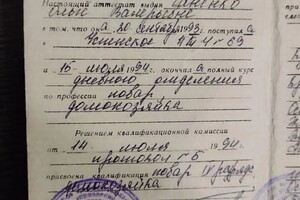 Настоящий аттестат выдан
Ольге Валерьевне
в том, что она 20 сентября 1993 г. поступила
Усинское ПТУ-69
и 15 июля 1994 г. окончила полный курс
дневного отделения
по профессии повар,
домохозяйка
Решением квалификационной комиссии
от 14 июля 1994 г.
протокол № 5
присвоена квалификация повар IV разряда
домохозяйка